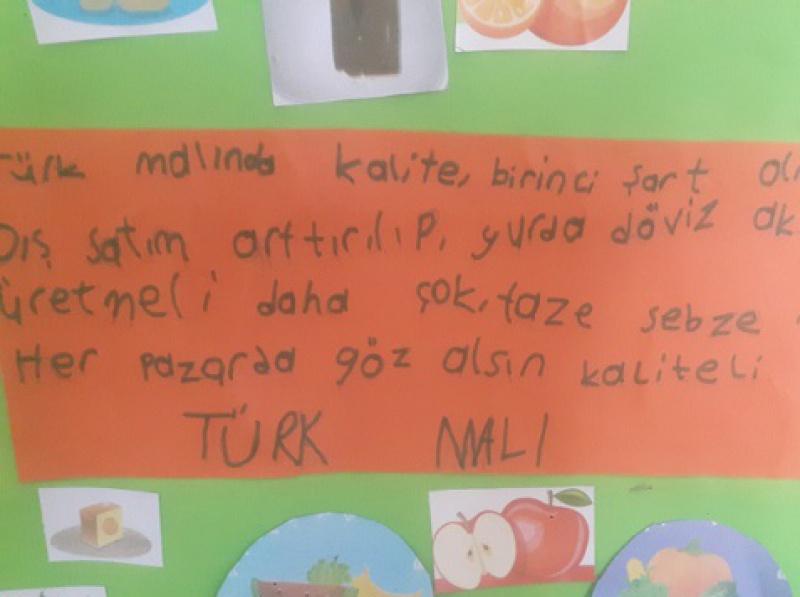 Türk malında kalite, birinci şart
Dış satım arttırılıp, yurda döviz
üretmeli daha çok, taze sebze
Her pazarda göz alsın kaliteli
TÜRK MALI